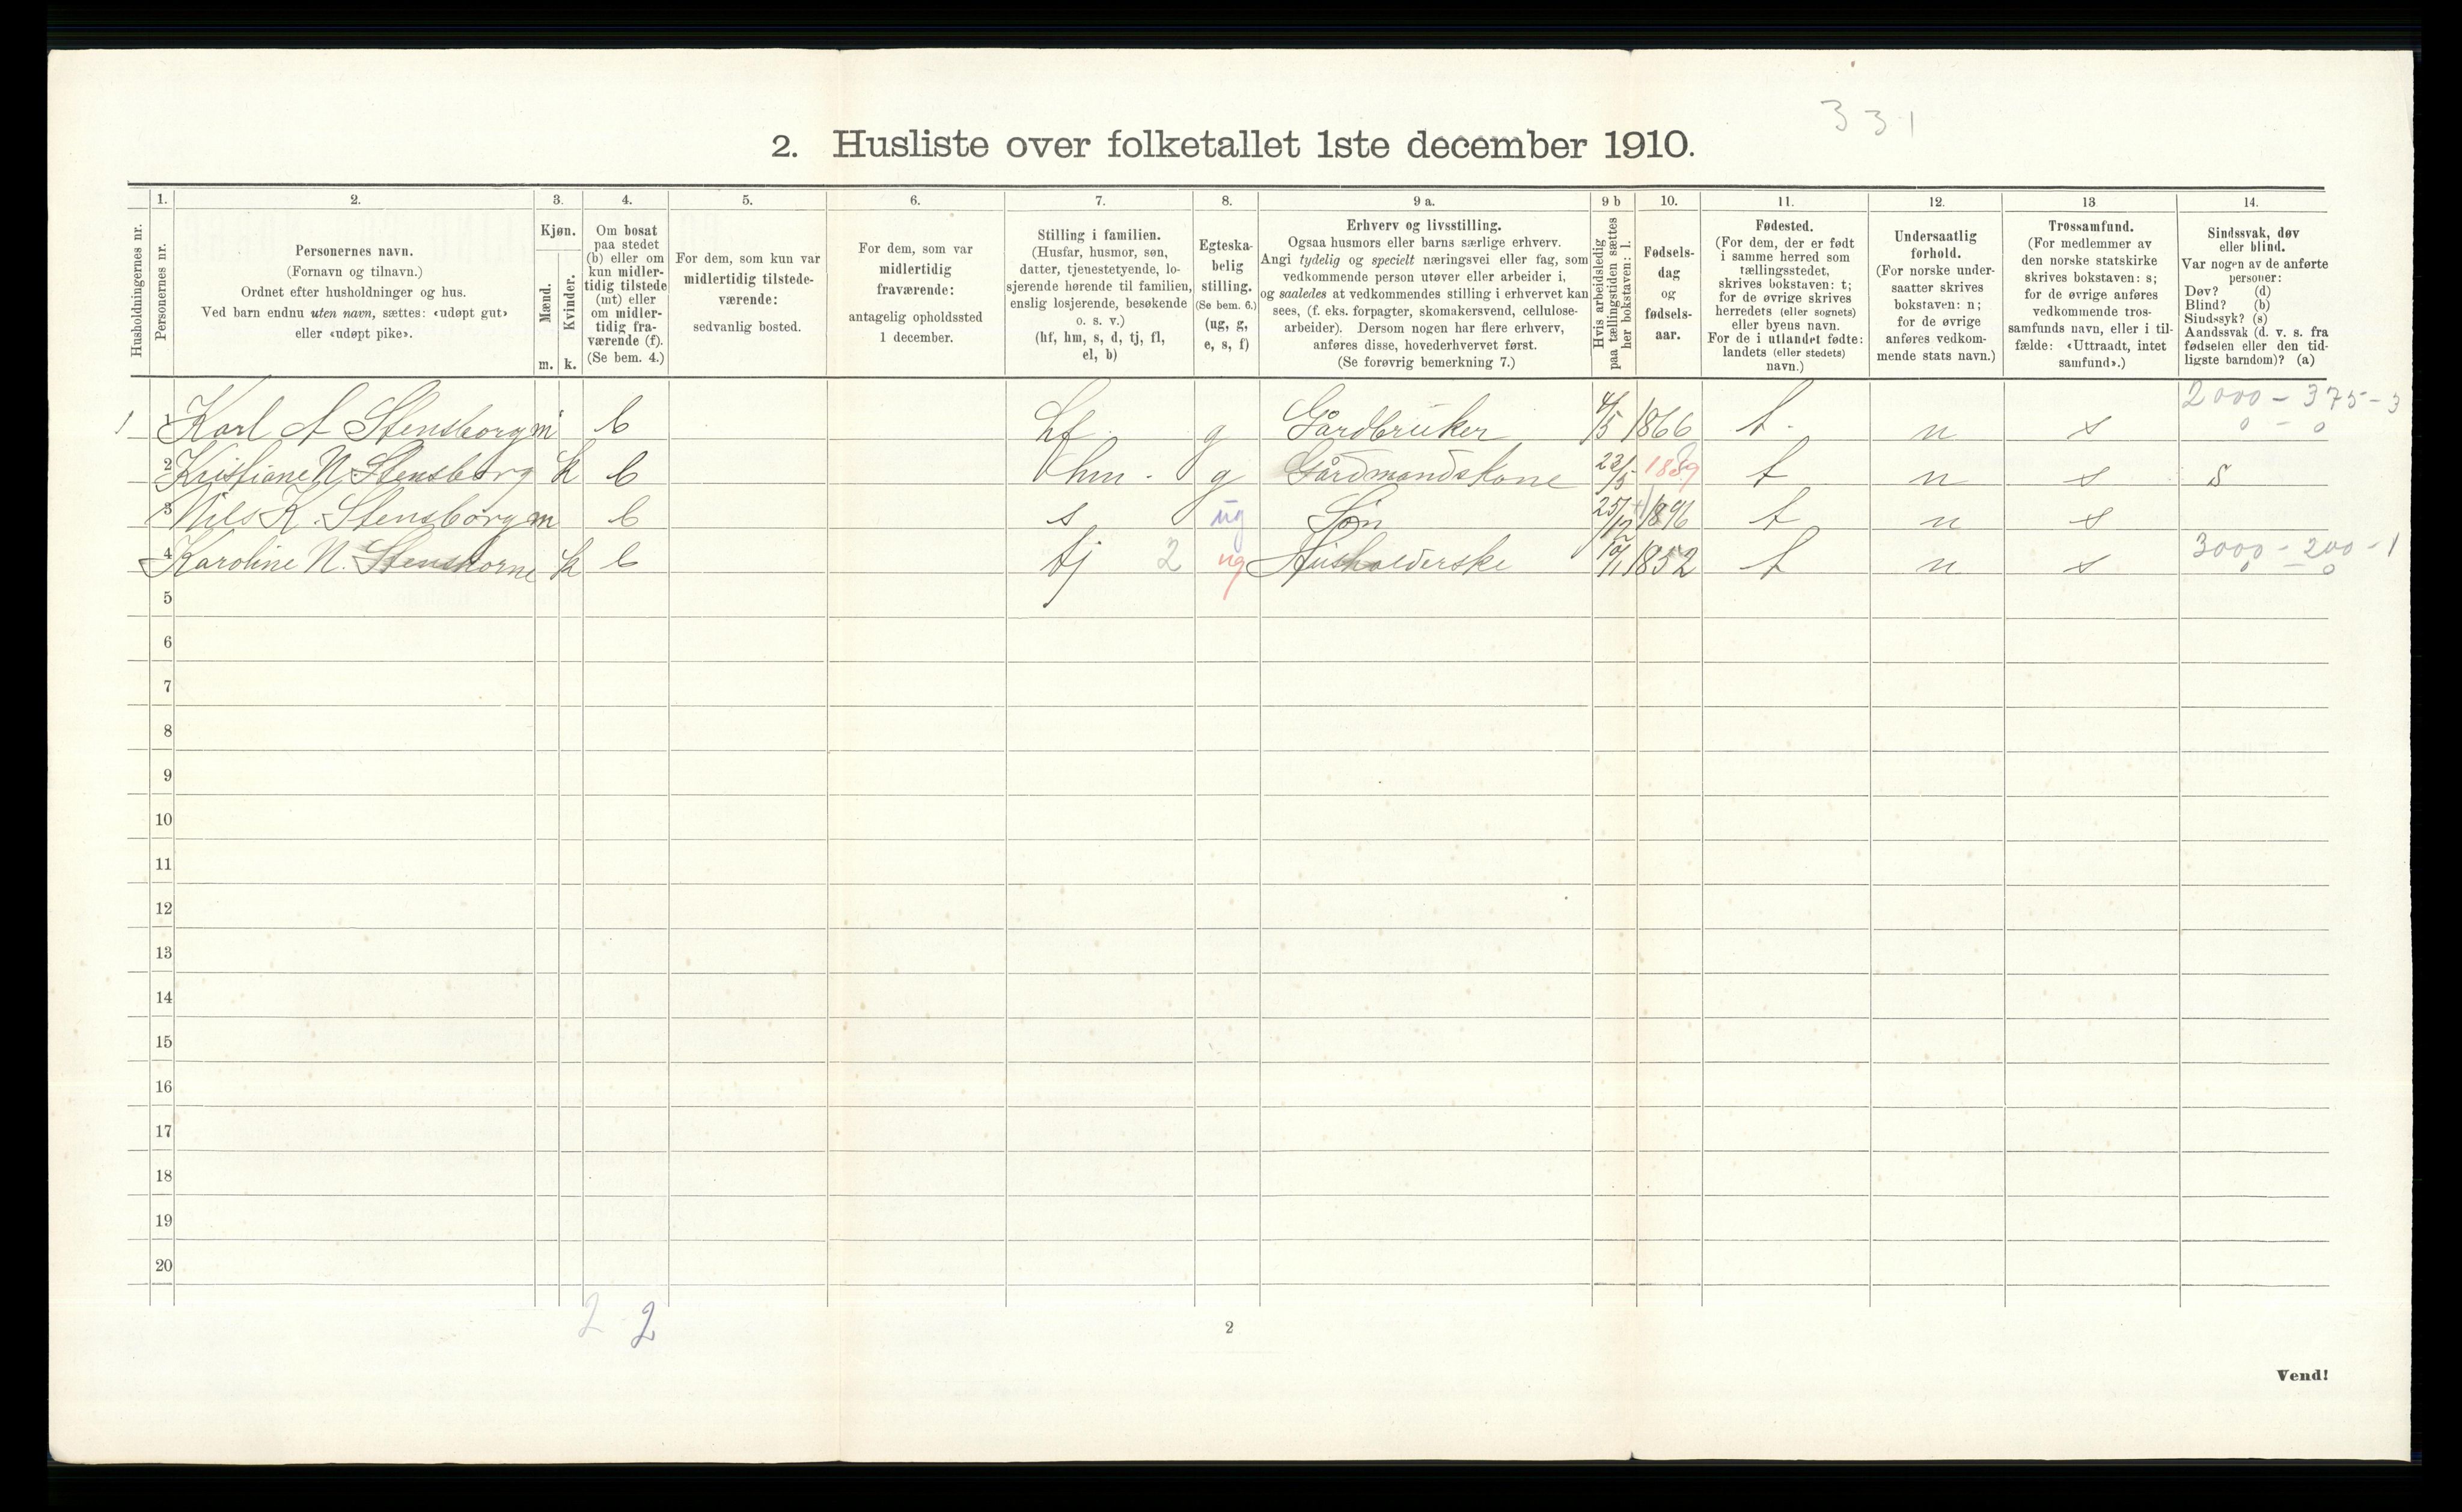 331
2. Husliste over folketallet 1ste december 1910.
1. 2. 3. 4. 5. 6. 7. 8. 9 a. 9 b 10. 11. 12. 13 14.
Husholdningernes nr.
Personernes nr.
Personernes navn.
(Fornavn og tilnavn.)
Ordnet efter husholdninger og hus.
Ved barn endnu uten navn, sættes: «udøpt gut»
eller «udøpt pike».
Kjøn.
Mænd.
Kvinder.
m. k.
Om bosat
paa stedet
(b) eller om
kun midler-
tidig tilstede
(mt) eller
om midler-
tidig fra-
værende (f).
(Se bem. 4.)
For dem, som kun var
midlertidig tilstede-
værende:
sedvanlig bosted.
For dem, som var
midlertidig
fraværende:
antagelig opholdssted
1 december.
Stilling i familien.
(Husfar, husmor, søn,
datter, tjenestetyende, lo-
sjerende hørende til familien,
enslig losjerende, besøkende
o. s. v.)
(hf, hm, s, d, tj, fl,
el, b)
Egteska-
belig
stilling.
(Se bem. 6.)
(ug, g,
e, s, f)
Erhverv og livsstilling.
Ogsaa husmors eller barns særlige erhverv.
Angi tydelig og specielt næringsvei eller fag, som
vedkommende person utøver eller arbeider i,
og saaledes at vedkommendes stilling i erhvervet kan
sees, (f. eks. forpagter, skomakersvend, cellulose-
arbeider). Dersom nogen har flere erhverv,
anføres disse, hovederhvervet først.
(Se forøvrig bemerkning 7.)
Hvis arbeidsledig
paa tællingstiden sættes
her bokstaven: l.
Fødsels-
dag
og
fødsels-
aar.
Fødested.
(For dem, der er født
i samme herred som
tællingsstedet,
skrives bokstaven: t;
for de øvrige skrives
herredets (eller sognets)
eller byens navn.
For de i utlandet fødte:
landets (eller stedets)
navn.)
Undersaatlig
forhold.
(For norske under-
saatter skrives
bokstaven: n;
for de øvrige
anføres vedkom-
mende stats navn.)
Trossamfund.
(For medlemmer av
den norske statskirke
skrives bokstaven: s;
for de øvrige anføres
vedkommende tros-
samfunds navn, eller i til-
fælde: «Uttraadt, intet
samfund».)
Sindssvak, døv
eller blind.
Var nogen av de anførte
personer:
Døv? (d)
Blind? (b)
Sindssyk? (s)
Aandssvak (d. v. s. fra
fødselen eller den tid-
ligste barndom)? (a)
2000 - 375 - 3
1 1 Karl A Stensborg m b hf. g Gårdbruker 4/5 1866 t. n s 0 - 0
2 Kristiane N. Stensborg k b hm. g Gårdmandskone 23/5 n s s
3 Nils K. Stensborg m b s ug Søn 25/12 1896 t n s
3000 - 200 - 1
4 Karoline N. k b tj 2 ug Husholderske 1852 t n s 0 - 0
5
6
7
8
9
10
11
12
13
14
15
16
17
18
19
20
2 2
2
Vend!